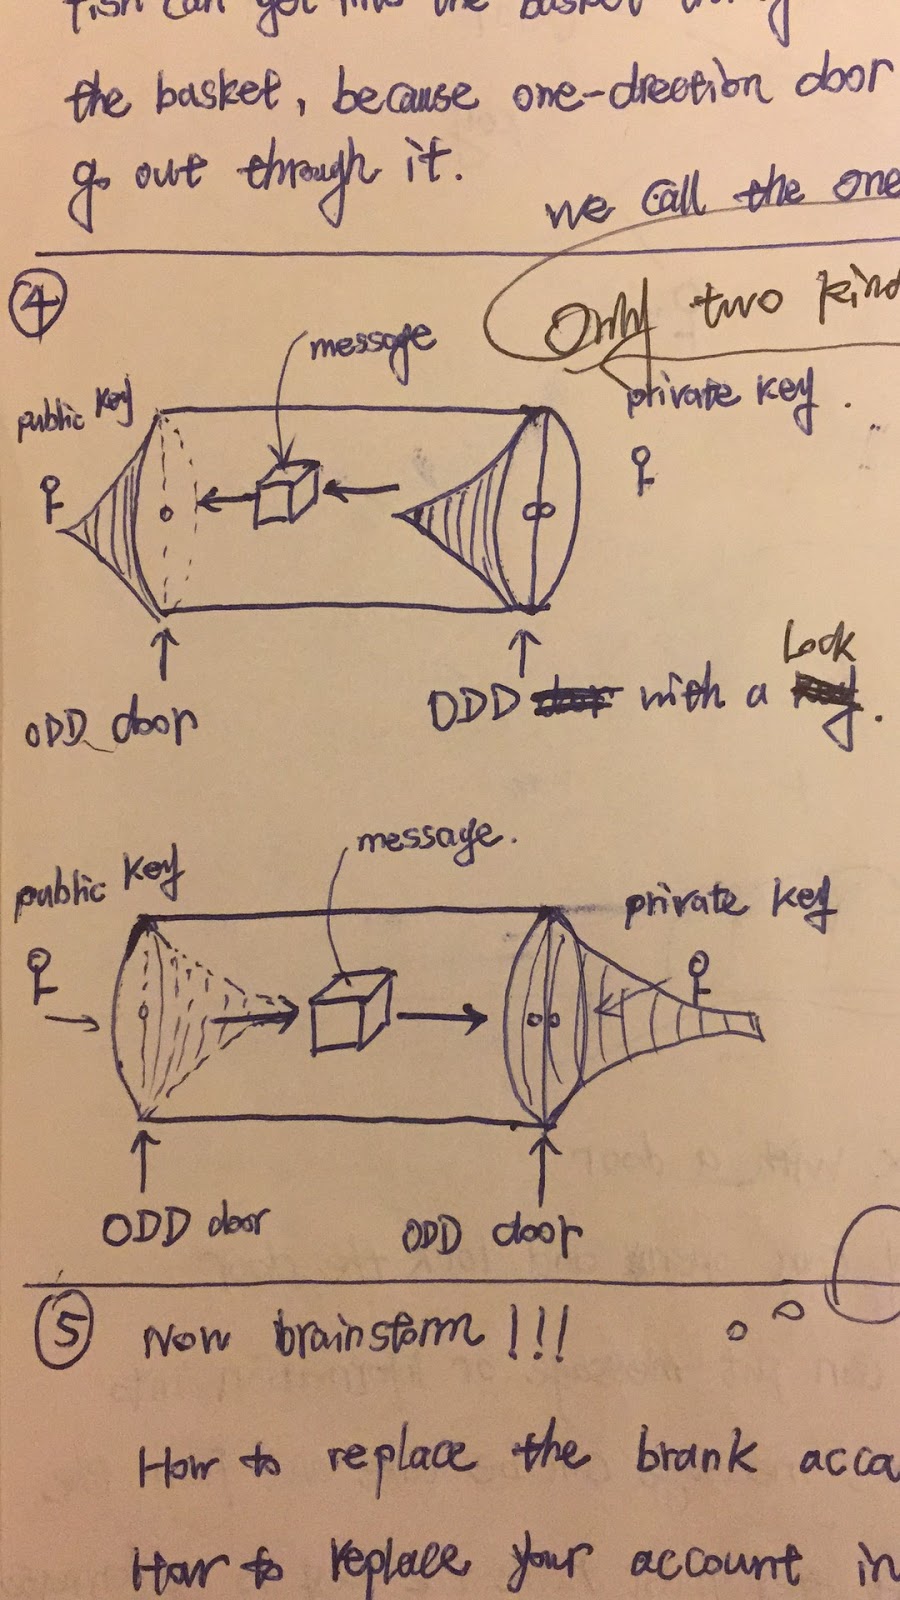 fish can get into the basket
the basket, because one-drection door
go out through it.
we call the one
4
Only two kind
message
public key
private key.
ODD door
ODD with a Lock.
message.
public key
private key
ODD door
ODD door
5
Now brainstorm!!!
How to replace the brank acco
How to replace your account in